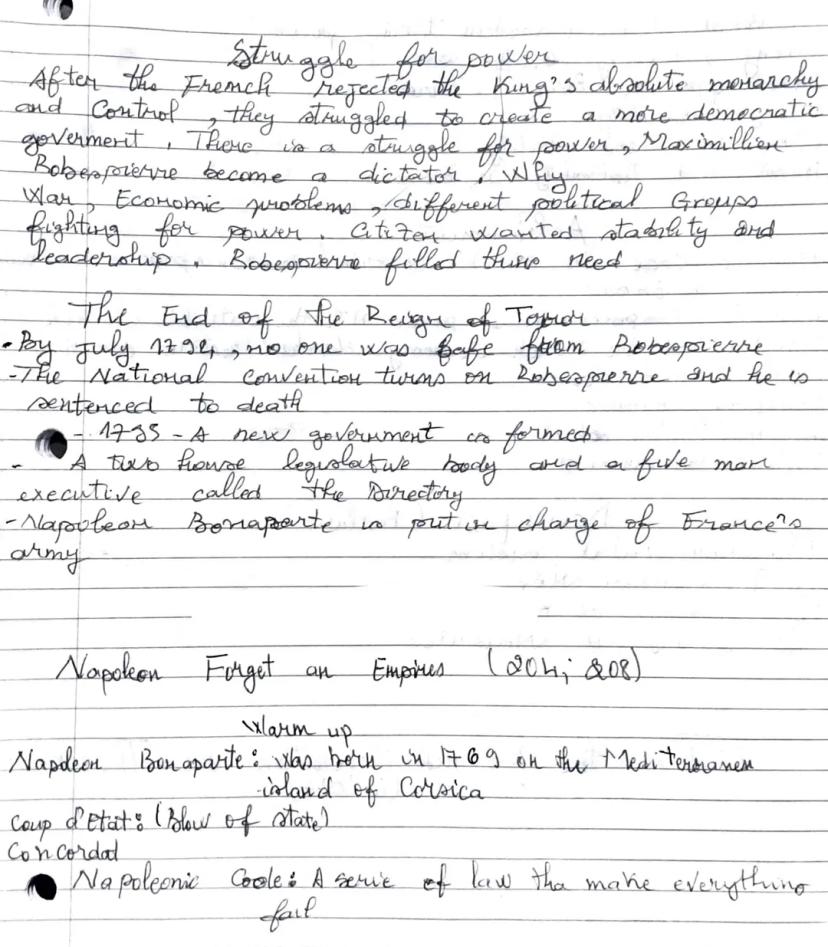 Struggle for power
After the French rejected the King's absolute monarchy
and Control, they struggled to create a more democratic
goverment. There is a struggle for power, Maximillien
Robespierre become a dictator. Why
War, Economic problems, different political Groups
fighting for power. Citizen wanted stability and
leadership. Robespierre filled these need
The End of the Reign of Terror
• By July 1794, no one was safe from Robespierre
- The National convention turns on Robespierre and he is
sentenced to death
- 1795 - A new government is formed
- A two house legislative body and a five man
executive called the Directory
- Napoleon Bonaparte is put in charge of France's
army
Napoleon Forget an Empires (204; 208)
Warm up
Napoleon Bonaparte: was born in 1769 on the Mediterranen
island of Corsica
Coup d'Etat: (Blow of state)
Concordat
Napoleonic Code: A serie of law tha make everything
fail